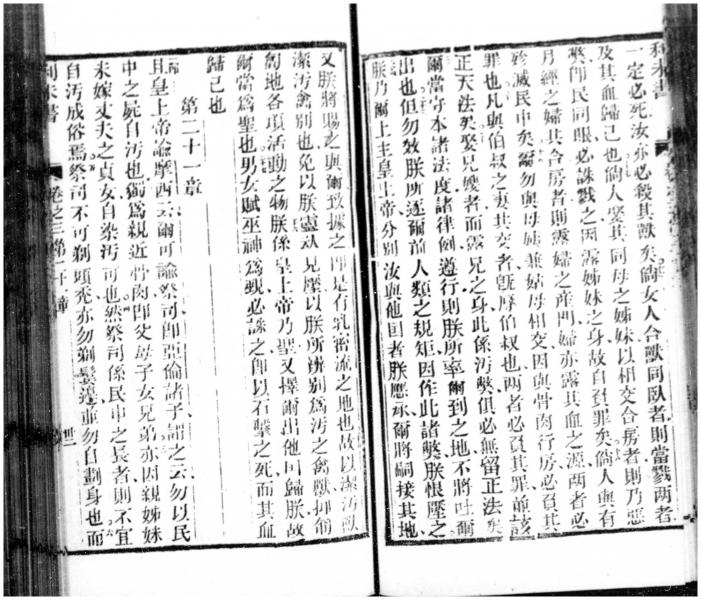 利未書
一定必死汝亦必殺其獸矣倘女人合獸同臥者則當戮两者
及其血歸己也倘人娶其同母之姊妹以相交合房者則乃惡
弊即民同眼必誅戮之因露姊妹之身故自負罪矣倘人與有
月經之婦共合房者則露婦之產門婦亦露其血之源两者必
殄滅民中矣爾勿與母姊兼姑母相交因與骨肉行房必負其
罪也凡與伯叔之妻共交者旣辱伯叔也两者必負其罪前該
正天法矣娶兄嫂者而露兄之身此係汚弊俱必無留正法矣
爾當守本諸法度諸律例遵行則朕所率爾到之地不將吐爾
出也但勿效朕所逐爾前人類之規矩因作此諸弊朕恨壓之
朕乃爾上主皇上帝分别汝與他囯者朕應承爾將嗣接其地
又朕將賜之與爾致據之即是有乳密流之地也故以潔汚獸
潔汚禽别也免以朕盡
見壓以朕所辨别爲汚之禽獸抑匍
匐地各項活動之物朕係皇上帝乃聖又擇爾出他囯歸朕故
爾當爲聖也男女賦巫神爲覡必誅之即以石擊之死而其血
歸己也
第二十一章
且皇上帝諭摩西云爾可諭祭司即亞倫諸子語之云勿以民
中之屍自汚也獨爲親近骨肉即父母子女兄弟亦因親姊妹
未嫁丈夫之貞女自染汚可也然祭司係民中之長者則不宜
自汚成俗焉祭司不可剃頭禿亦勿剃鬚蓬並勿自劃身也而
利未書
卷之三第二十章